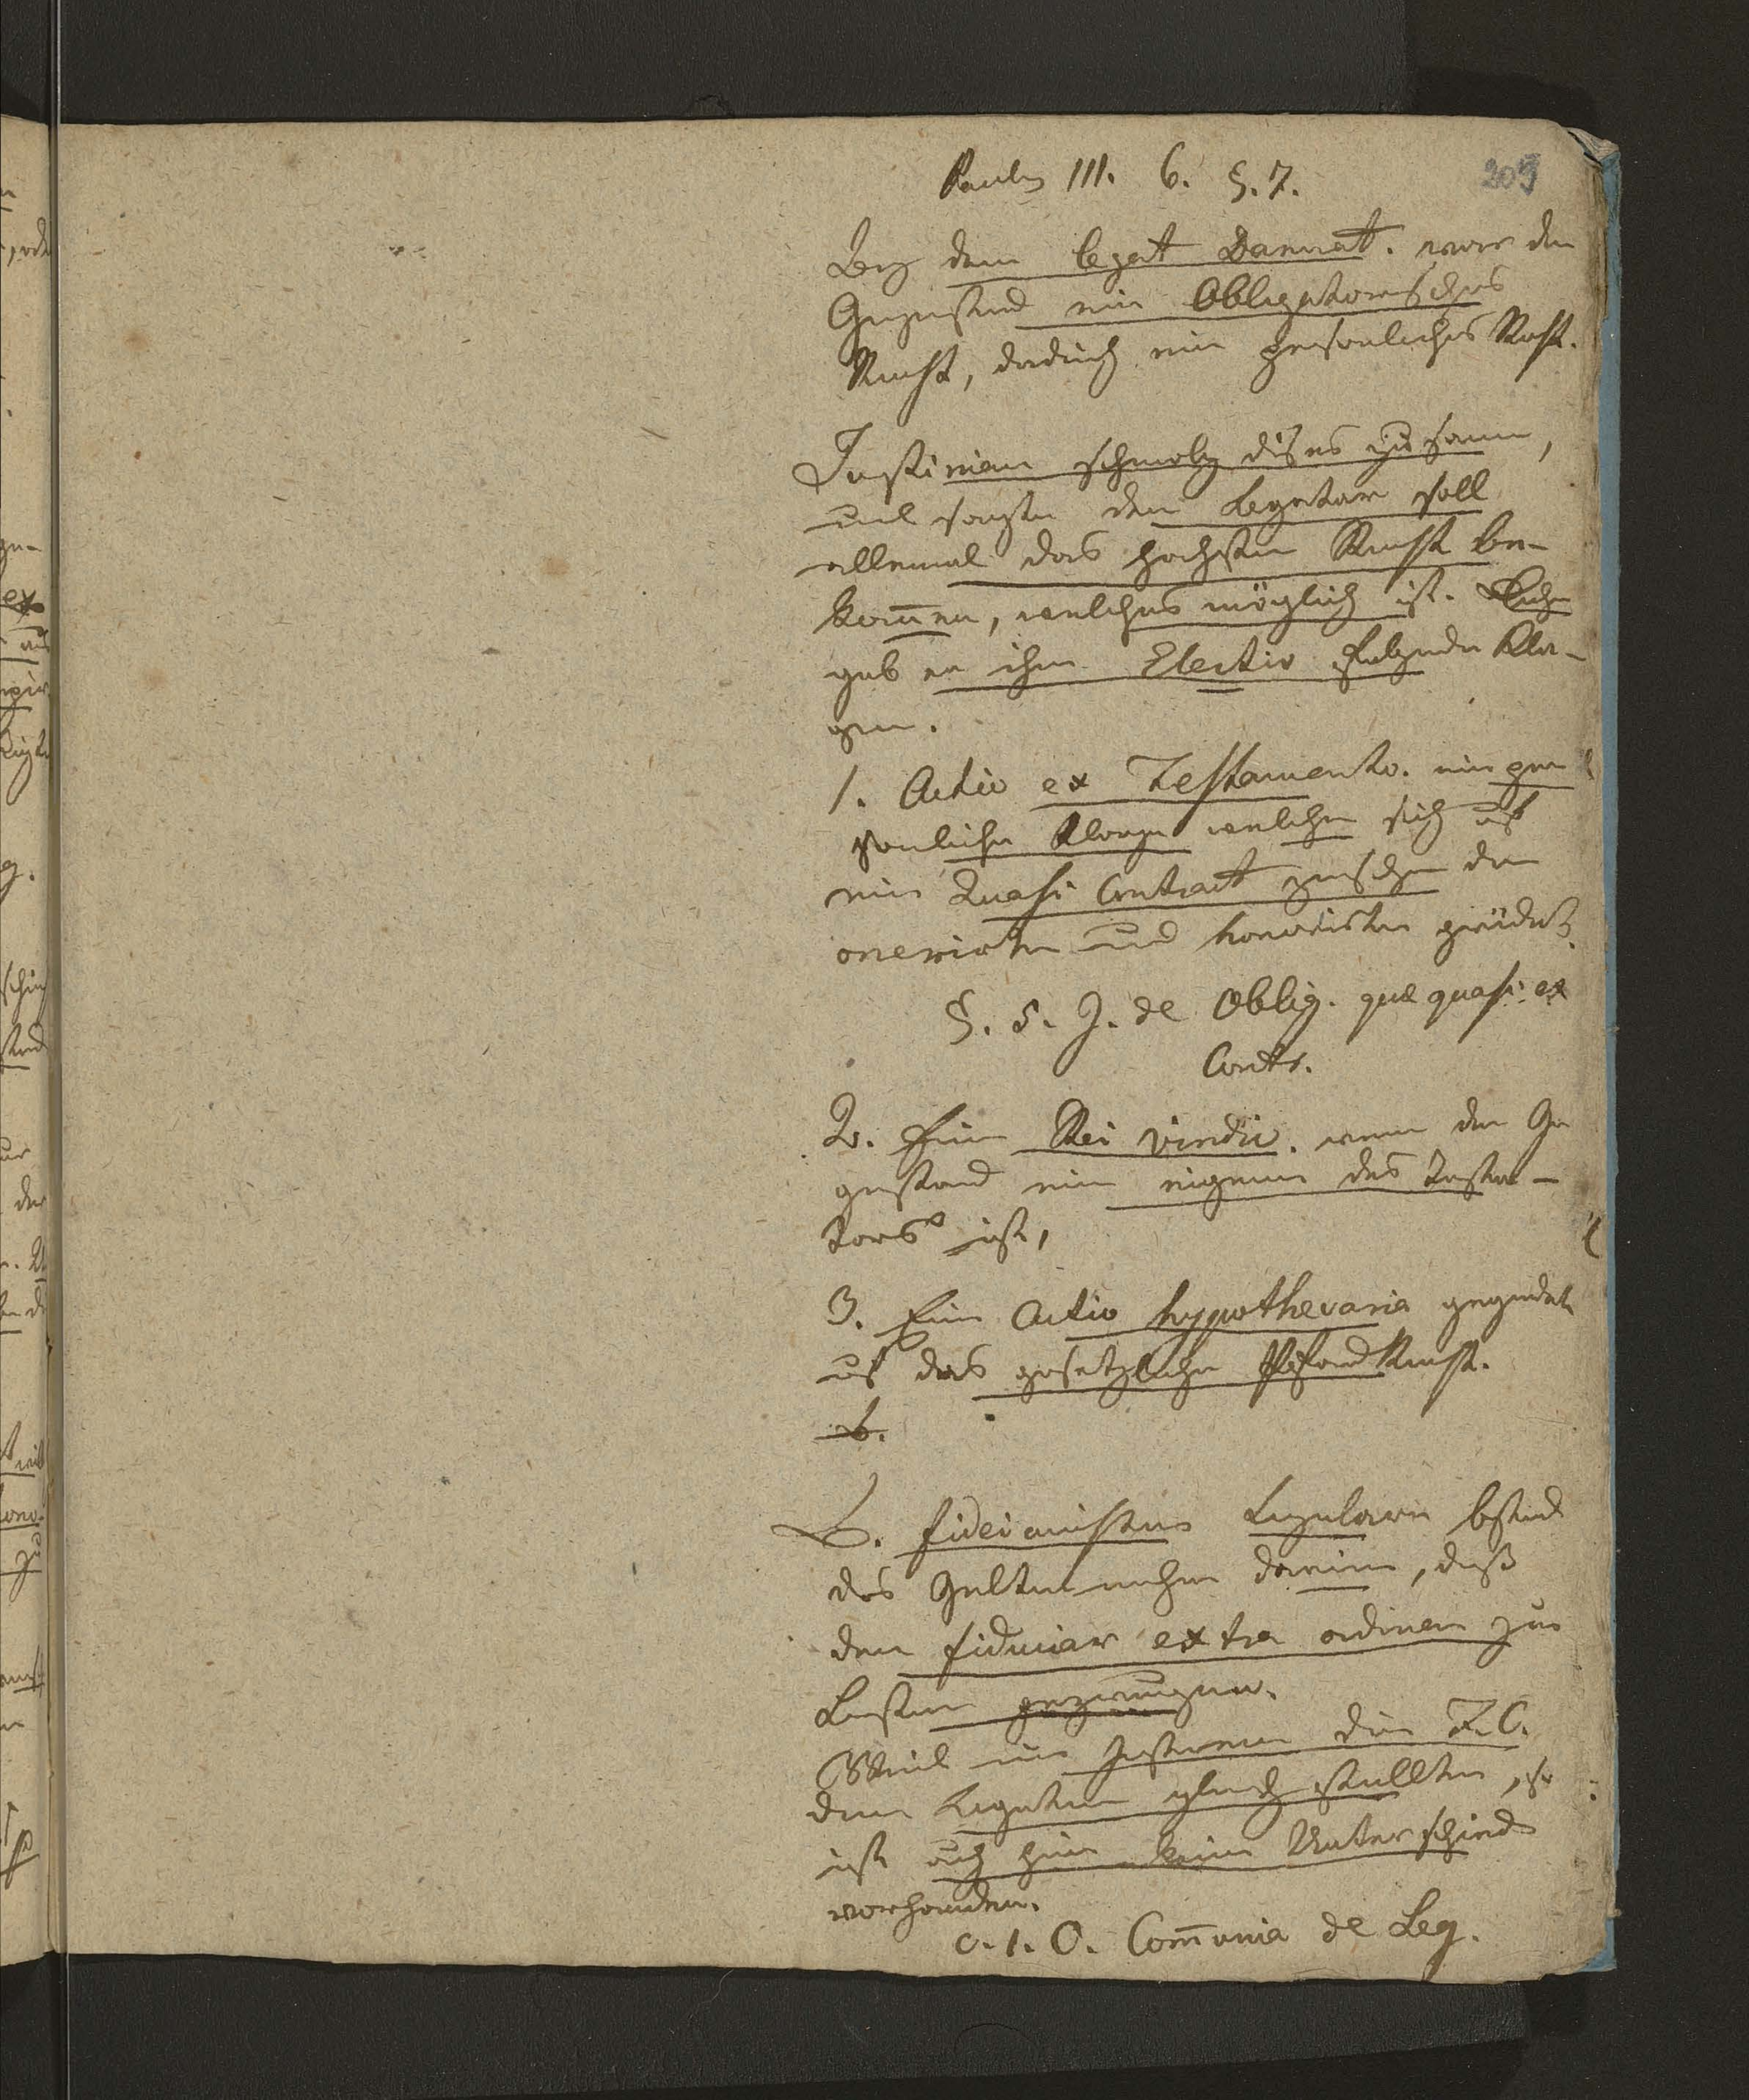 Paulus III. 6. §. 7.
209
Bey dem legat Damnat. war der
Gegenstand ein Obligatorisches
Recht, dadurch ein persönliches Recht.
Justinian schmolz dises zusam,
und sagte der Legatar soll
allemal das hochste Recht be-
kom̅en, welches möglich ist.
gab er ihm Electiv folgende Kla-
gen.
1. Actio ex Testamento. eine per
sonliche Klage welche sich uf
ein Quasi Contract zwischen dem
onerirten und honorirten gründet.
§. 5. J. de Oblig. quæ quasi ex
Contr.
2. Eine Rei vindic. wenn der Ge
genstand ein eigenes des Testa-
tors ist,
3. Eine Actio hypothecaria gegründet
uf das gesetzliche Pfand Recht.
b.
b. fideicomissen Singularn bestand
das Geltend machen darinn, daß
der fiduciar extra ordinem zur
Leisten gezwungen.
Weil nun Justinian die F. C.
den Legaten gleich stellte, so
ist auch hier kein Unterschied
vorhanden.
c. 1. C. Com̅unia de Leg.